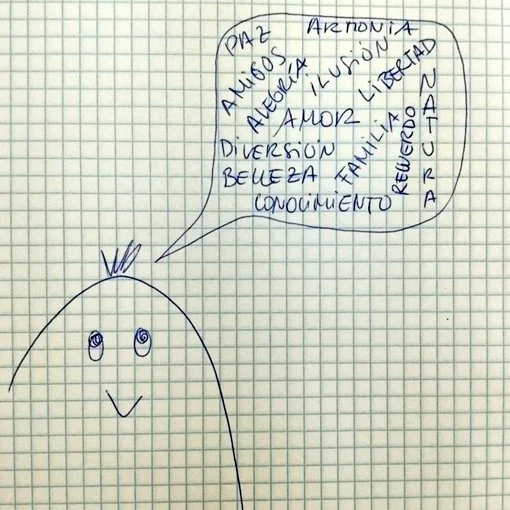 PAZ
ARMONIA
AMIGOS
ALEGRÍA
ILUSIÓN
LIBERTAD
AMOR
DIVERSIÓN
FAMILIA
RECUERDO
NATURA
BELLEZA
CONOCIMIENTO